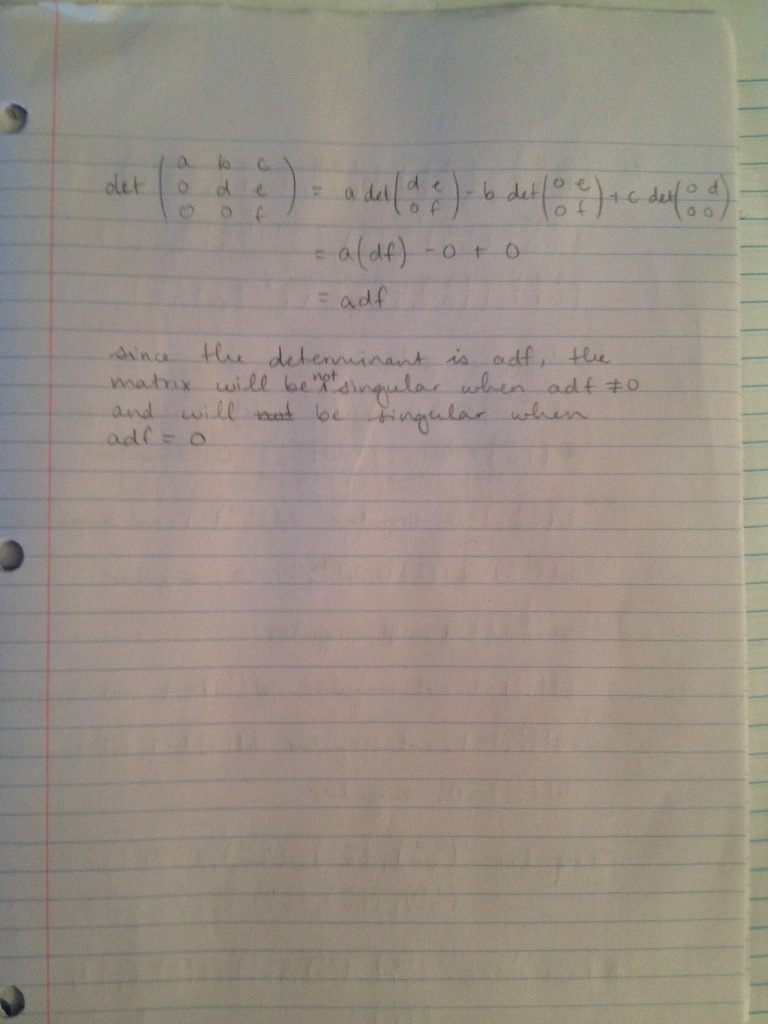 det ( a b c ; 0 d e ; 0 0 f ) = a det ( d e ; 0 f ) - b det ( 0 e ; 0 f ) + c det ( 0 d ; 0 0 )
= a(df) - 0 + 0
= adf
since the determinant is adf, the
matrix will be not singular when adf ≠ 0
and will not be singular when
adf = 0